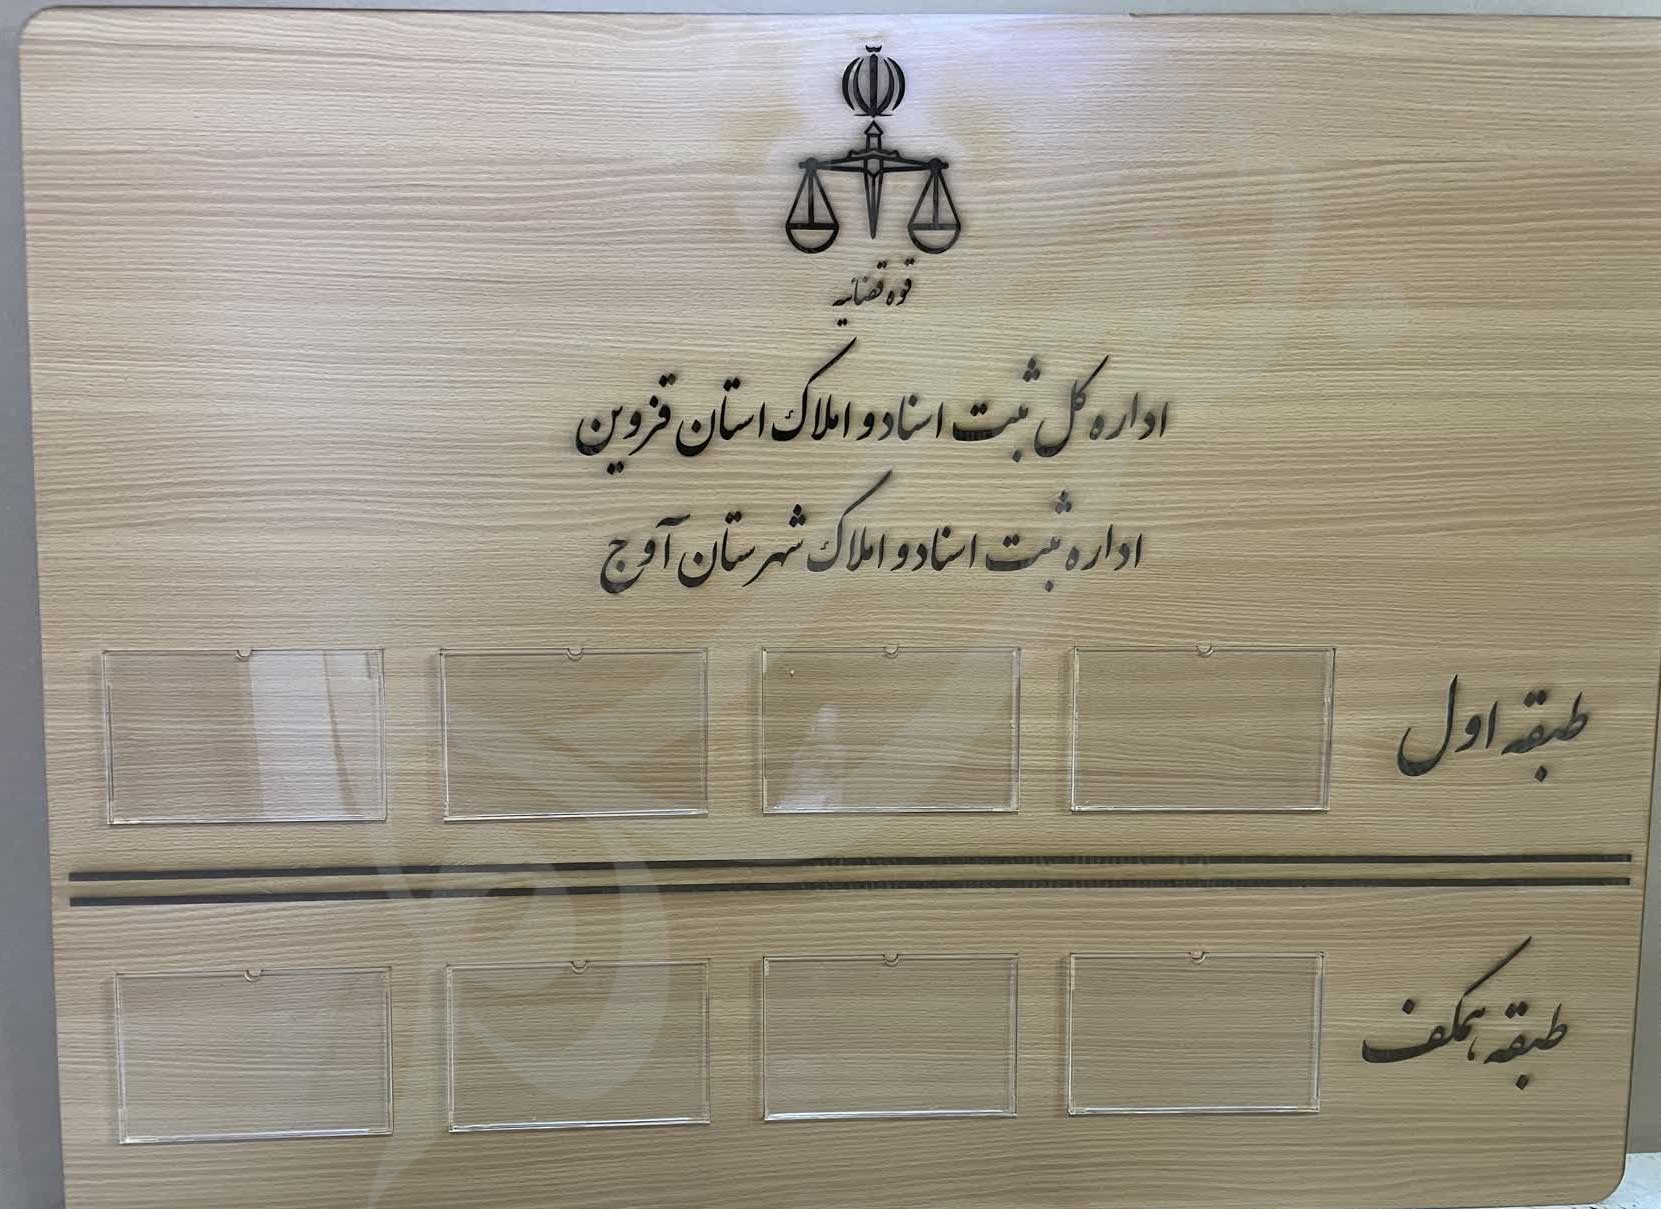 قوه قضائیه
اداره کل ثبت اسناد و املاک استان قزوین
اداره ثبت اسناد و املاک شهرستان آوج
طبقه اول
طبقه همکف